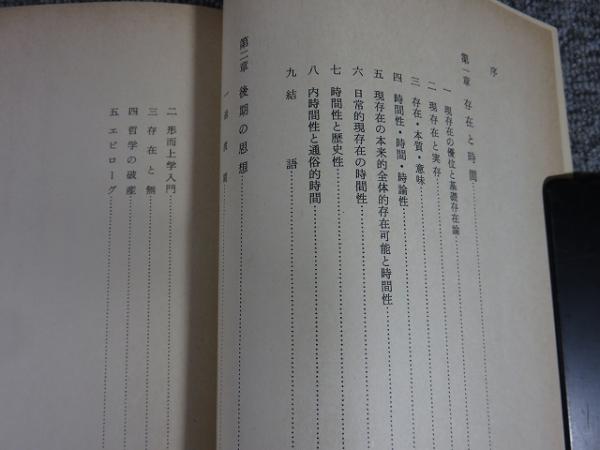 序
第一章 存在と時間
一 現存在の優位と基礎存在論
二 現存在と実存
三 存在・本質・意味
四 時間性・時間・時論性
五 現存在の本来的全体的存在可能と時間性
六 日常的現存在の時間性
七 時間性と歴史性
八 内時間性と通俗的時間
九 結語
第二章 後期の思想
一
二 形而上学入門
三 存在と無
四 哲学の破産
五 エピローグ